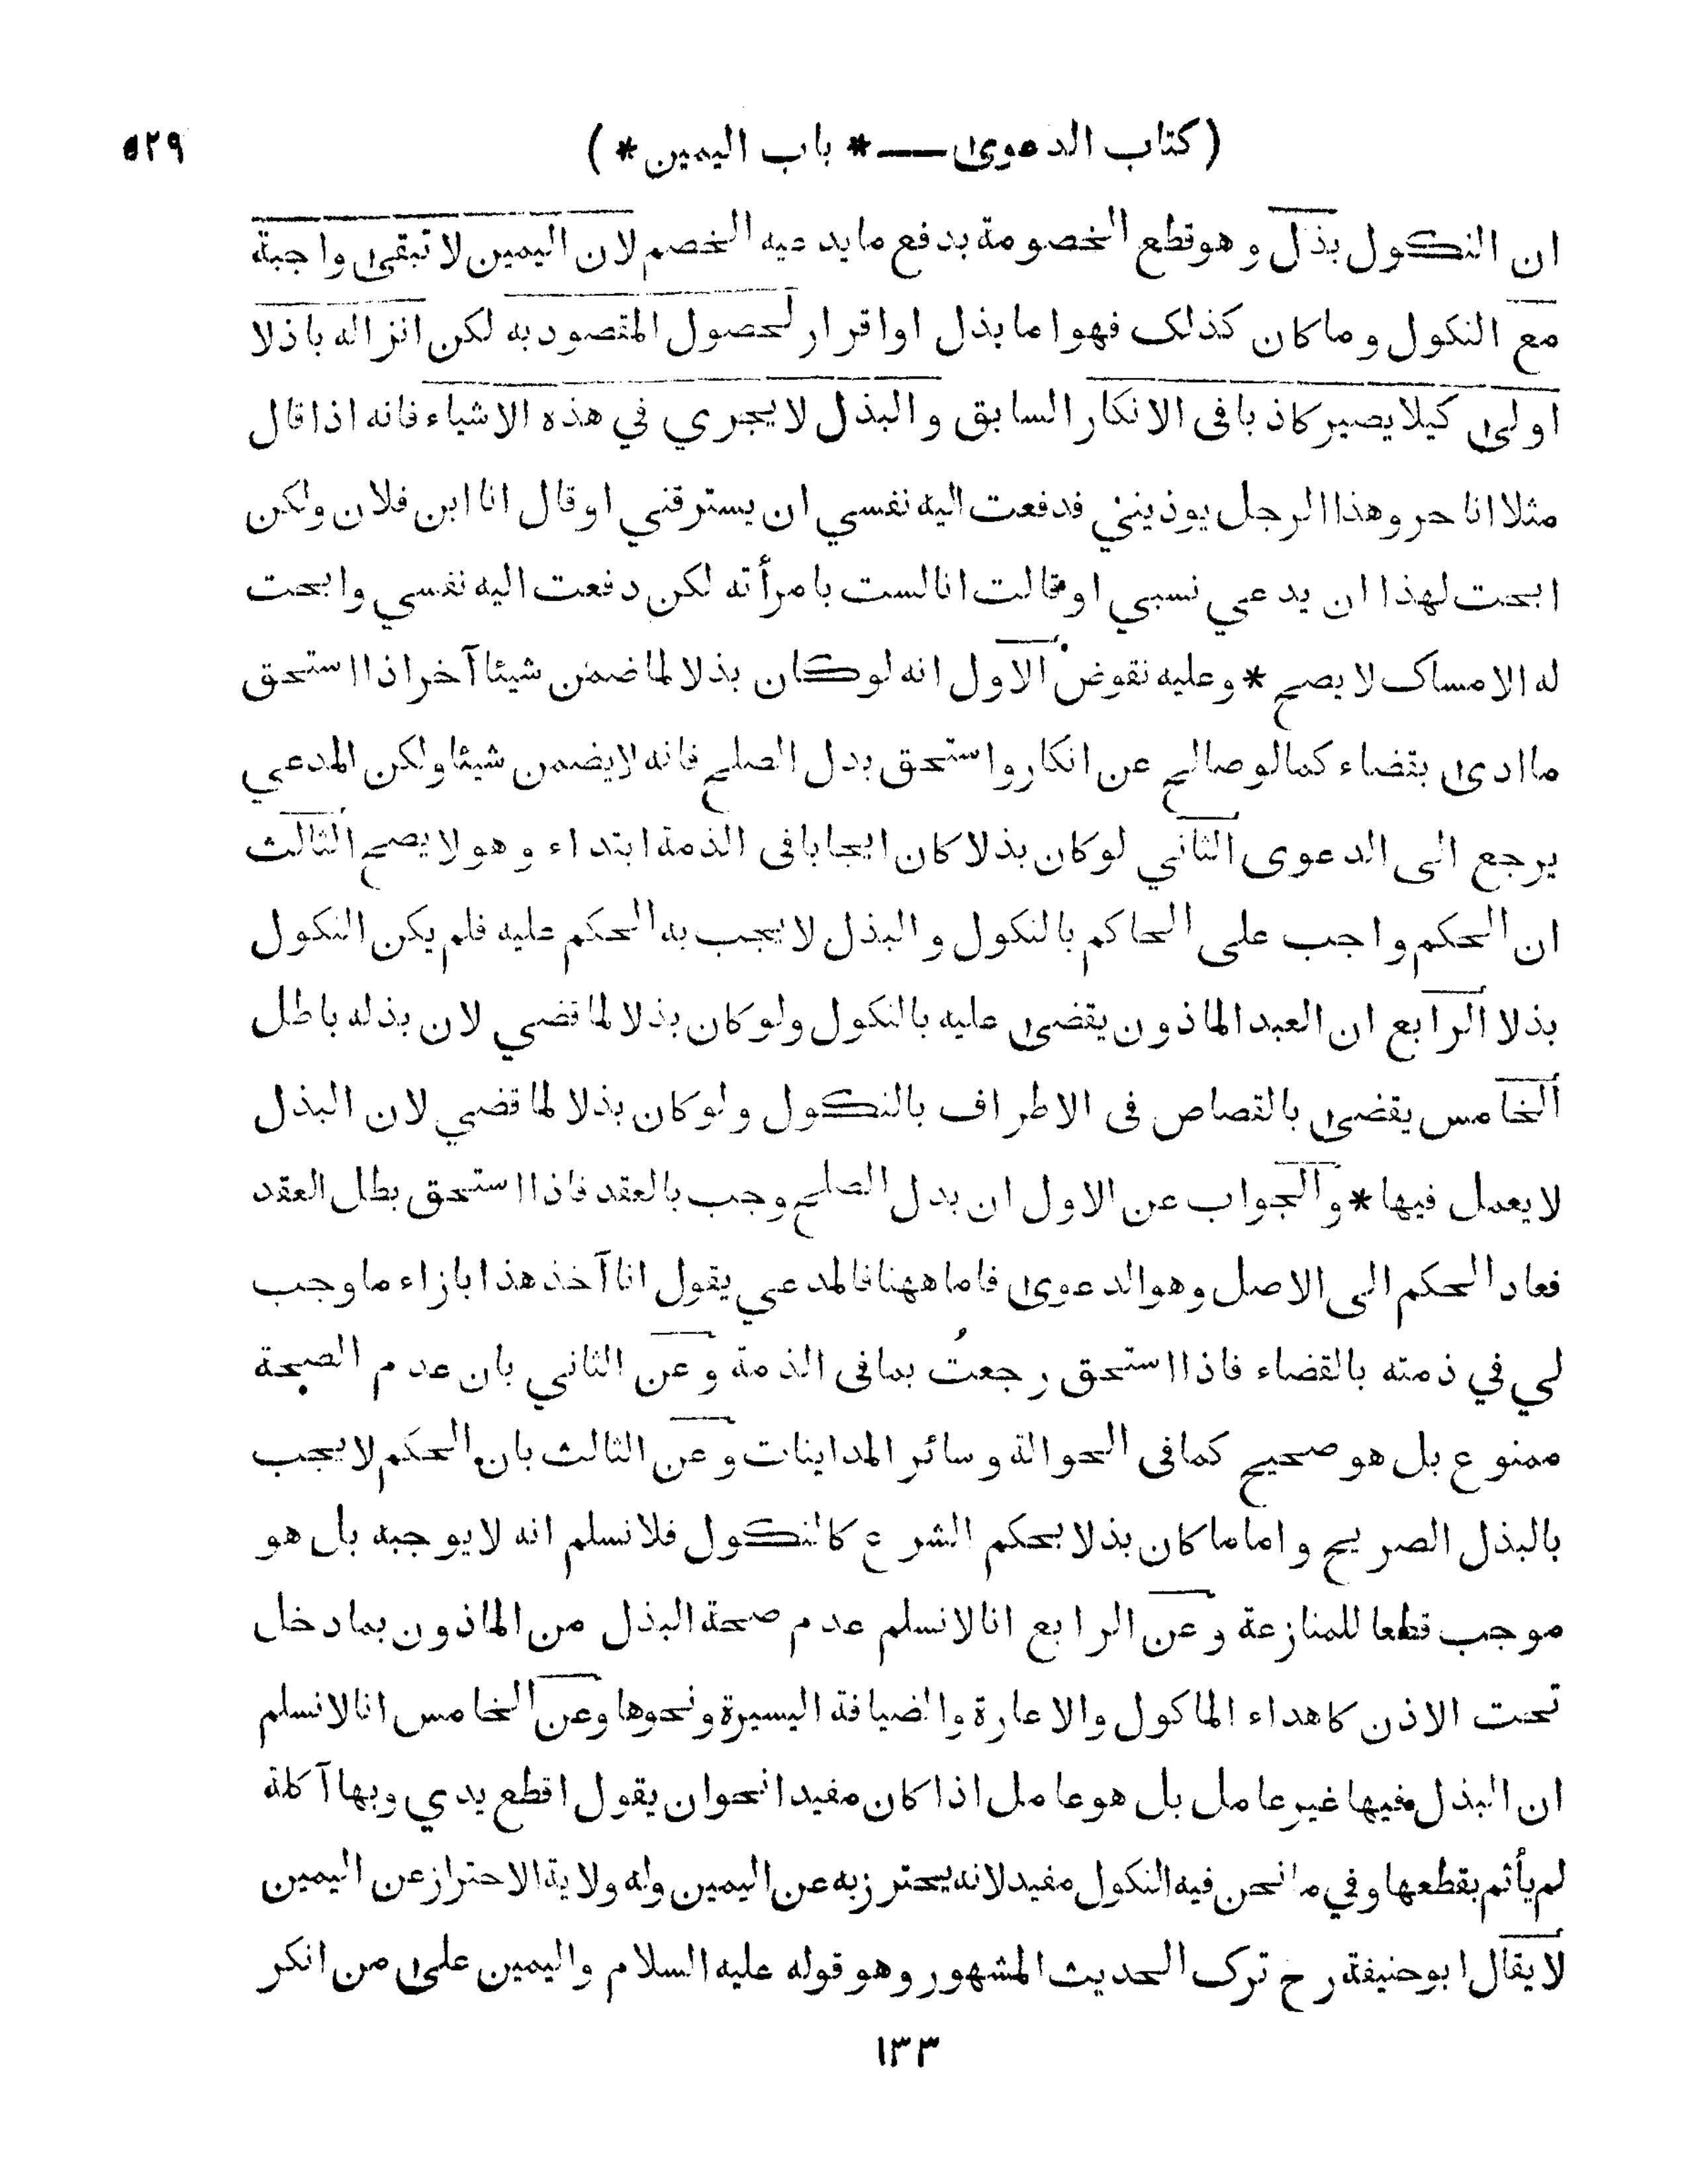 (كتاب الدعوى — * باب اليمين *) ٥٢٩
ان النكول بذل وهو قطع الخصومة بدفع ما يدعيه الخصم لان اليمين لا تبقى واجبة
مع النكول وما كان كذلك فهو اما بذل او اقرار لحصول المقصود به لكن انزاله باذلا
اولى كيلا يصير كاذبا فى الانكار السابق والبذل لا يجري في هذه الاشياء فانه اذا قال
مثلا انا حر وهذا الرجل يوذيني فدفعت اليه نفسي ان يسترقني او قال انا ابن فلان ولكن
ابحت لهذا ان يدعي نسبي او قالت انا لست بامرأته لكن دفعت اليه نفسي وابحت
له الامساك لا يصح * وعليه نقوض الاول انه لو كان بذلا لما ضمن شيئا آخر اذا استحق
ما ادى بقضاء كما لو صالح عن انكار واستحق بدل الصلح فانه لا يضمن شيئا ولكن المدعي
يرجع الى الدعوى الثاني لو كان بذلا كان ايجابا فى الذمة ابتداء وهو لا يصح الثالث
ان الحكم واجب على الحاكم بالنكول والبذل لا يجب به الحكم عليه فلم يكن النكول
بذلا الرابع ان العبد الماذون يقضى عليه بالنكول ولو كان بذلا لما قضي لان بذله باطل
الخامس يقضى بالقصاص فى الاطراف بالنكول ولو كان بذلا لما قضي لان البذل
لا يعمل فيها * والجواب عن الاول ان بدل الصلح وجب بالعقد فاذا استحق بطل العقد
فعاد الحكم الى الاصل وهو الدعوى فاما ههنا فالمدعي يقول انا آخذ هذا بازاء ما وجب
لي في ذمته بالقضاء فاذا استحق رجعتُ بما فى الذمة وعن الثاني بان عدم الصحة
ممنوع بل هو صحيح كما فى الحوالة وسائر المداينات وعن الثالث بان الحكم لا يجب
بالبذل الصريح واما ما كان بذلا بحكم الشرع كالنكول فلا نسلم انه لا يوجبه بل هو
موجب قطعا للمنازعة وعن الرابع انا لا نسلم عدم صحة البذل من الماذون بما دخل
تحت الاذن كاهداء الماكول والاعارة والضيافة اليسيرة ونحوها وعن الخامس انا لا نسلم
ان البذل فيها غير عامل بل هو عامل اذا كان مفيدا نحو ان يقول اقطع يدي وبها آكلة
لم يأثم بقطعها وفي ما نحن فيه النكول مفيد لانه يحترز به عن اليمين وله ولاية الاحتراز عن اليمين
لا يقال ابو حنيفة رح ترك الحديث المشهور وهو قوله عليه السلام واليمين على من انكر
١٣٣